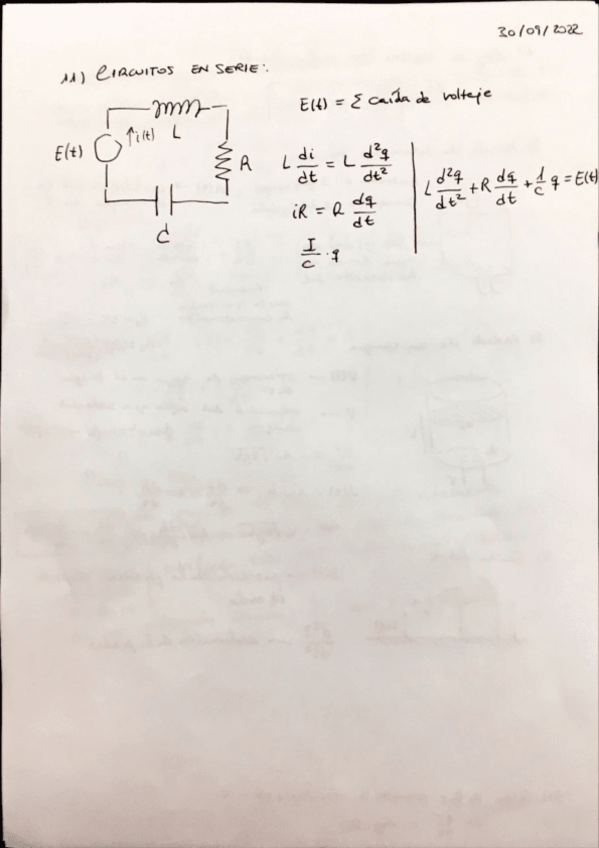 30/09/2022
11) CIRCUITOS EN SERIE:
E(t) = Σ caída de voltaje
L
i(t)
E(t)
R
C
L di/dt = L d²q/dt²
iR = R dq/dt
I/C · q
L d²q/dt² + R dq/dt + 1/C q = E(t)